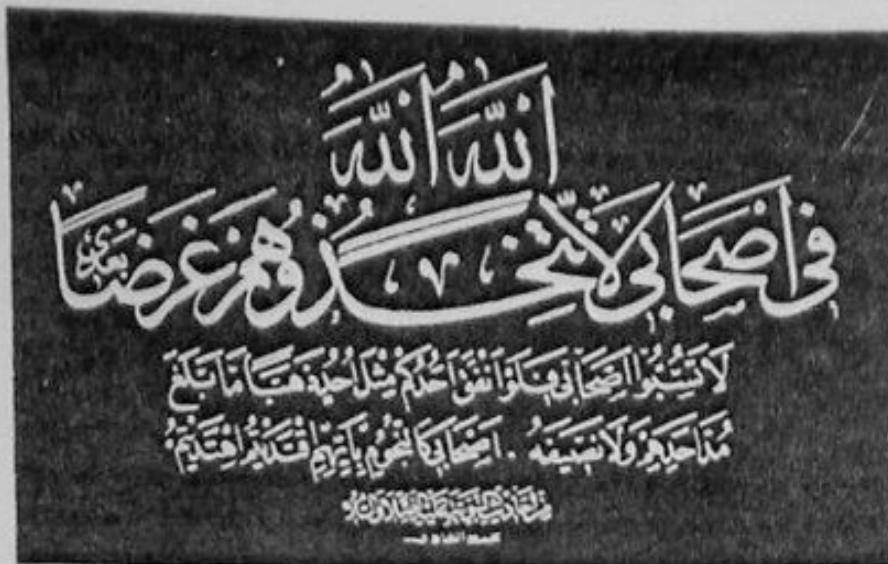 اَللّٰهَ اَللّٰهَ
فِى اَصْحَابِى لَا تَتَّخِذُوهُمْ غَرَضًا بَعْدِى
لَا تَسُبُّوا اَصْحَابِى فَلَوْ اَنْفَقَ اَحَدُكُمْ مِثْلَ اُحُدٍ ذَهَبًا مَا بَلَغَ
مُدَّ اَحَدِهِمْ وَلَا نَصِيفَهُ . اَصْحَابِى كَالنُّجُومِ بِاَيِّهِمْ اِقْتَدَيْتُمْ اِهْتَدَيْتُمْ